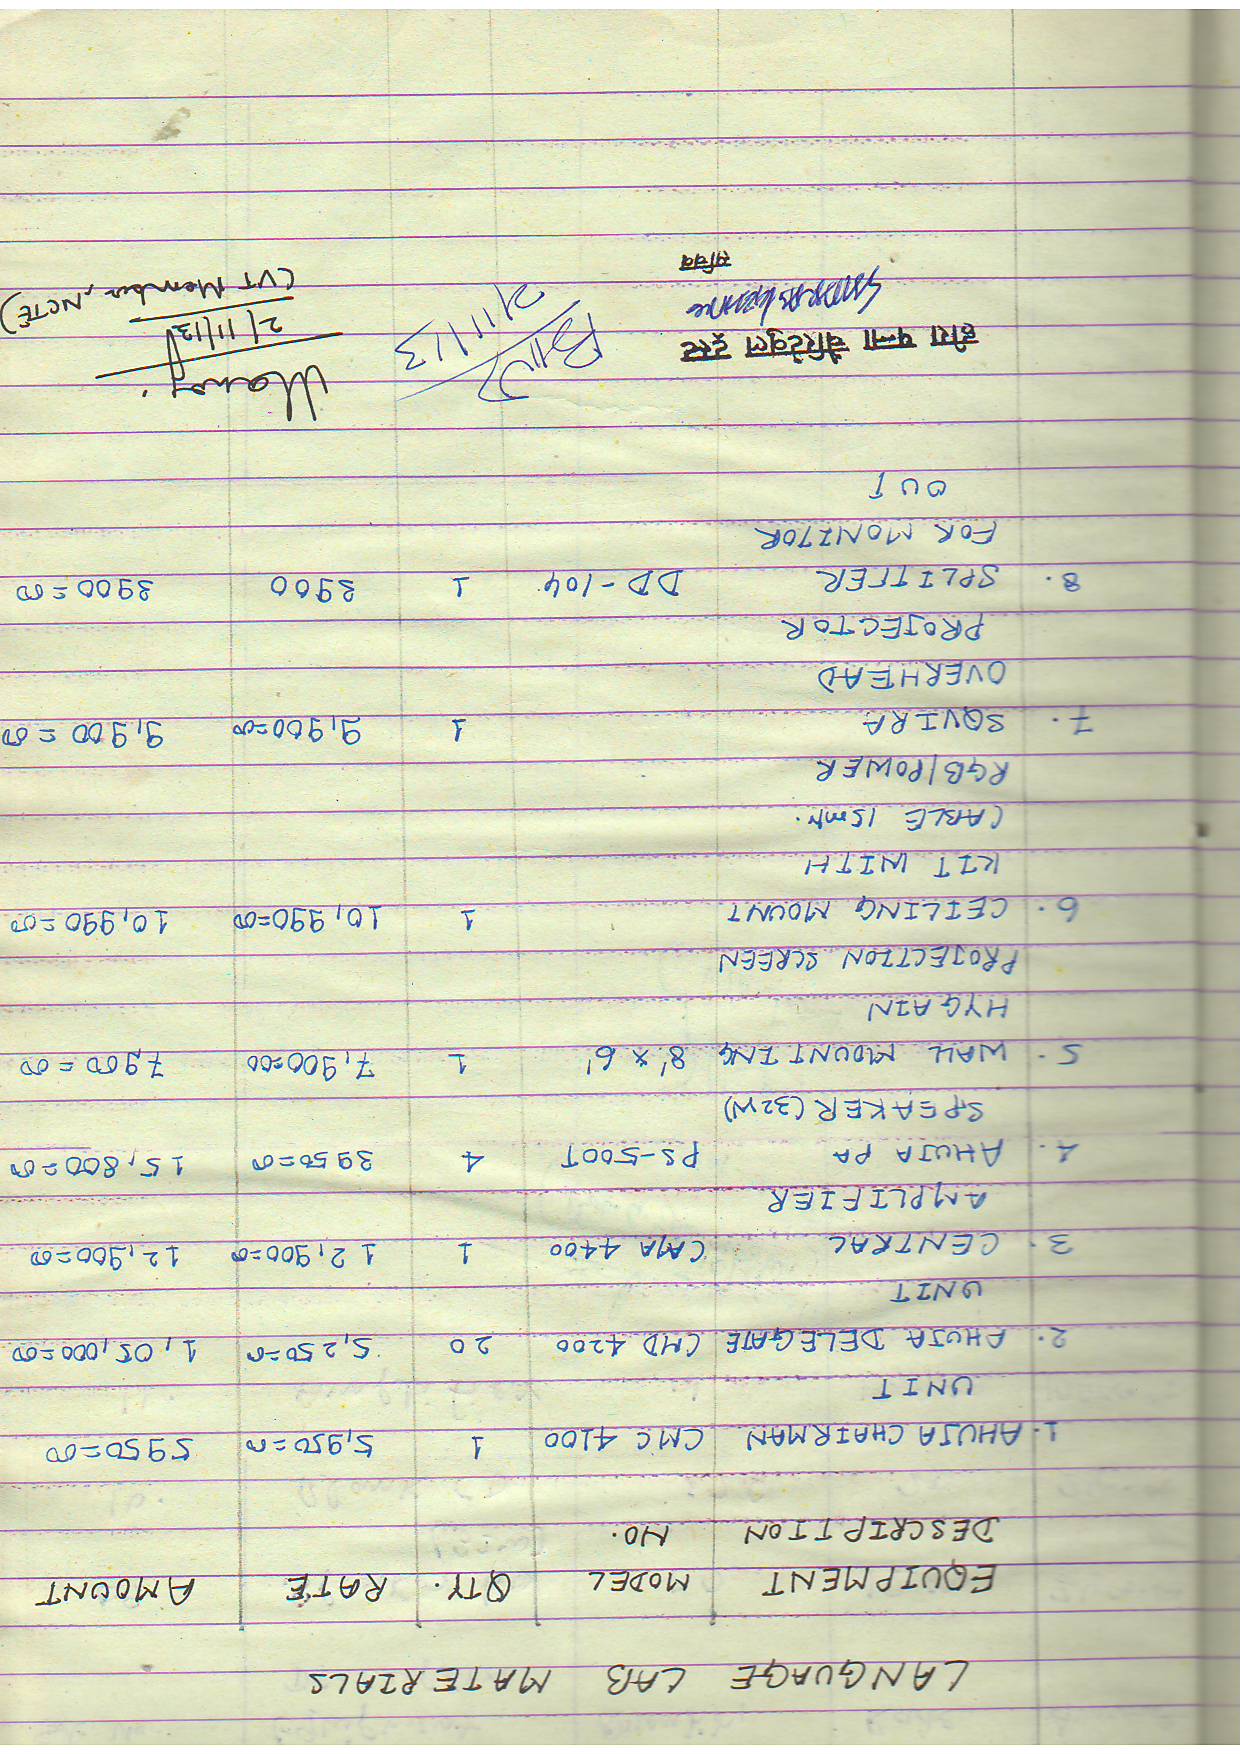 LANGUAGE LAB MATERIALS
EQUIPMENT MODEL QTY. RATE AMOUNT
DESCRIPTION NO.
1. AHUJA CHAIRMAN CMC 4100 1 5,950=00 5950=00
UNIT
2. AHUJA DELEGATE CMD 4200 20 5,250=00 1,05,000=00
UNIT
3. CENTRAL CMA 4400 1 12,900=00 12,900=00
AMPLIFIER
4. AHUJA PA PS-500T 4 3950=00 15,800=00
SPEAKER (32W)
5. WALL MOUNTING 8' x 6' 1 7,900=00 7,900=00
HYGAIN
PROJECTION SCREEN
6. CEILING MOUNT 1 10,990=00 10,990=00
KIT WITH
CABLE 15mtr.
RGB/POWER
7. SQUIRA 1 9,900=00 9,900=00
OVERHEAD
PROJECTOR
8. SPLITTER DD-104 1 3900 3900=00
FOR MONITOR
OUT
हीरा पन्ना चैरिटेबुल ट्रस्ट
सचिव
2/11/13
Manoj
2/11/13
(VT Member, NCTE)